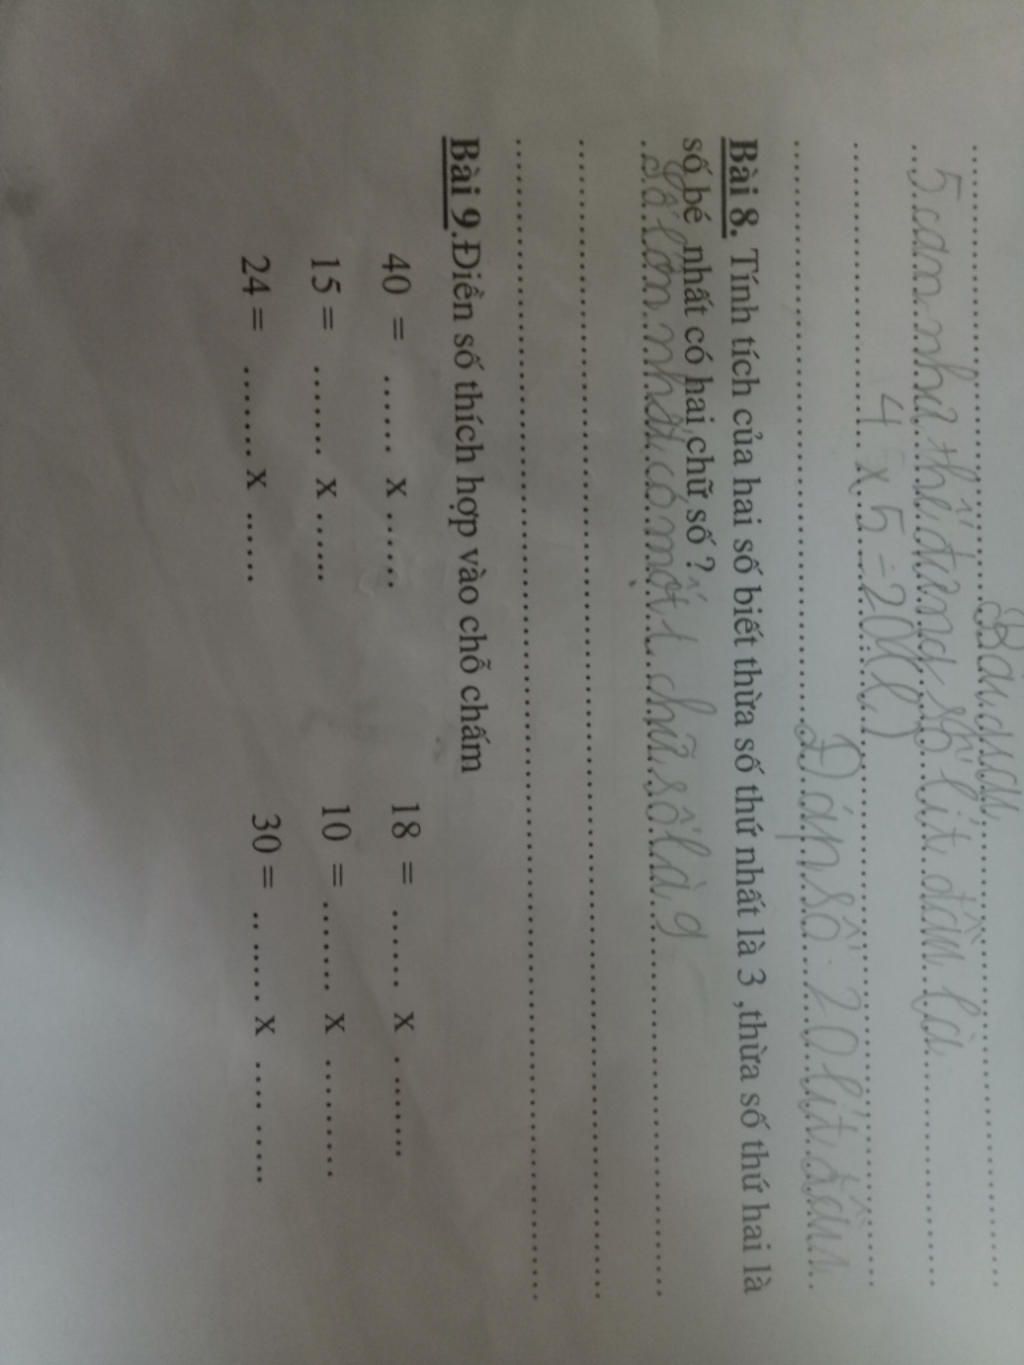 Bài giải
5 can như thế đựng số lít dầu là
4 x 5 = 20(l)
Đáp số: 20 lít dầu
Bài 8. Tính tích của hai số biết thừa số thứ nhất là 3 ,thừa số thứ hai là
số bé nhất có hai chữ số ?
Số lớn nhất có một chữ số là 9
Bài 9.Điền số thích hợp vào chỗ chấm
40 = ...... x ...... 18 = ...... x . .......
15 = ....... x ...... 10 = ....... x ........
24 = ....... x ..... 30 = .. ..... x .... .....